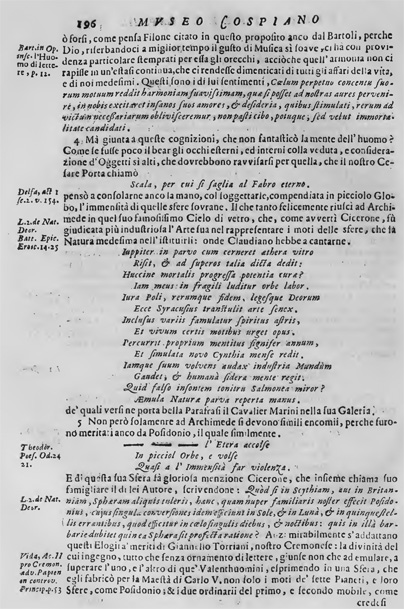 196 MVSEO COSPIANO
ò forsi, come pensa Filone citato in questo proposito anco dal Bartoli, perche
Bart. in Op.
insc. l'Huo-
mo di lette-
re, p. 12.
Dio, riserbandoci a miglior tempo il gusto di Musica sì soave, ci hà con provi-
denza particolare stemprati per essa gli orecchi, acciòche quell'armonia non ci
rapisse in un'estasi continua, che ci rendesse dimenticati di tutti gli affari della vita,
e di noi medesimi. Questi sono i di lui sentimenti, Cælum perpetuo concentu suo-
rum motuum reddit harmoniam suavissimam, quæ si posset ad nostras aures perveni-
re, in nobis excitaret insanos suos amores, & desideria, quibus stimulati, rerum ad
victum necessariarum oblivisceremur, non pasti cibo, potuque, sed velut immorta-
litate candidati.
4 Mà giunta a queste cognizioni, che non fantasticò la mente dell'huomo?
Come se fusse poco il bear gli occhi esterni, ed interni colla veduta, e considera-
zione d'Oggetti sì alti, che dovrebbono ravvisarsi per quella, che il nostro Ce-
sare Porta chiamò
Scala, per cui si saglia al Fabro eterno.
Delfa, att 1
sc. 2. v. 154.
pensò a consolarne anco la mano, col soggettarle, compendiata in picciolo Glo-
bo, l'immensità di quelle sfere sovrane. Il che tanto felicemente riuscì ad Archi-
L. 2. de Nat.
Deor.
mede in quel suo famosissimo Cielo di vetro, che, come avvertì Cicerone, fù
giudicata più industriosa l'Arte sua nel rappresentare i moti delle sfere, che la
Natura medesima nell'istituirli: onde Claudiano hebbe a cantarne.
Iuppiter in parvo cum cerneret æthera vitro
Risit, & ad superos talia dicta dedit:
Huccine mortalis progressa potentia curæ?
Iam meus in fragili luditur orbe labor.
Iura Poli, rerumque fidem, legesque Deorum
Ecce Syracusius transtulit arte senex.
Inclusus variis famulatur spiritus astris,
Et vivum certis motibus urget opus.
Percurrit proprium mentitus signifer annum,
Et simulata novo Cynthia mense redit.
Iamque suum volvens audax industria Mundum
Gaudet, & humanâ sidera mente regit.
Quid falso insontem tonitru Salmonea miror?
Æmula Natura parva reperta manus.
de' quali versi ne porta bella Parafrasi il Cavalier Marini nella sua Galeria.
5 Non però solamente ad Archimede si devono simili encomii, perche furo-
no meritati anco da Posidonio, il quale similmente.
l'Etera accolse
In picciol Orbe, e volse
Quasi a l'Immensità far violenza.
E di questa sua Sfera fà gloriosa menzione Cicerone, che insieme chiama suo
famigliare il di lei Autore, scrivendone:
L. 2. de Nat.
Deor.
Quòd si in Scythiam, aut in Britan-
niam, Spheram aliquis tulerit, hanc, quam nuper familiaris noster effecit Posido-
nius, cujus singulæ conversiones idem efficiunt in Sole, & in Lunâ, & in quinque stel-
lis errantibus, quod efficitur in cœlo singulis diebus, & noctibus: quis in illa bar-
barie dubitet quin ea Sphæra sit profecta ratione? Anzi mirabilmente s'addattano
questi Elogi a' meriti di Giannello Torriani, nostro Cremonese: la divinità del
cui ingegno, tutto che senza ornamento di lettere, giunse non che ad emulare, a
superare l'uno, e l'altro di que' Valenthuomini, esprimendo in una Sfera, che
egli fabricò per la Maestà di Carlo V, non solo i moti de' sette Pianeti, e loro
Sfere, come Posidonio; & i due ordinarii del primo, e secondo mobile, come
credesi